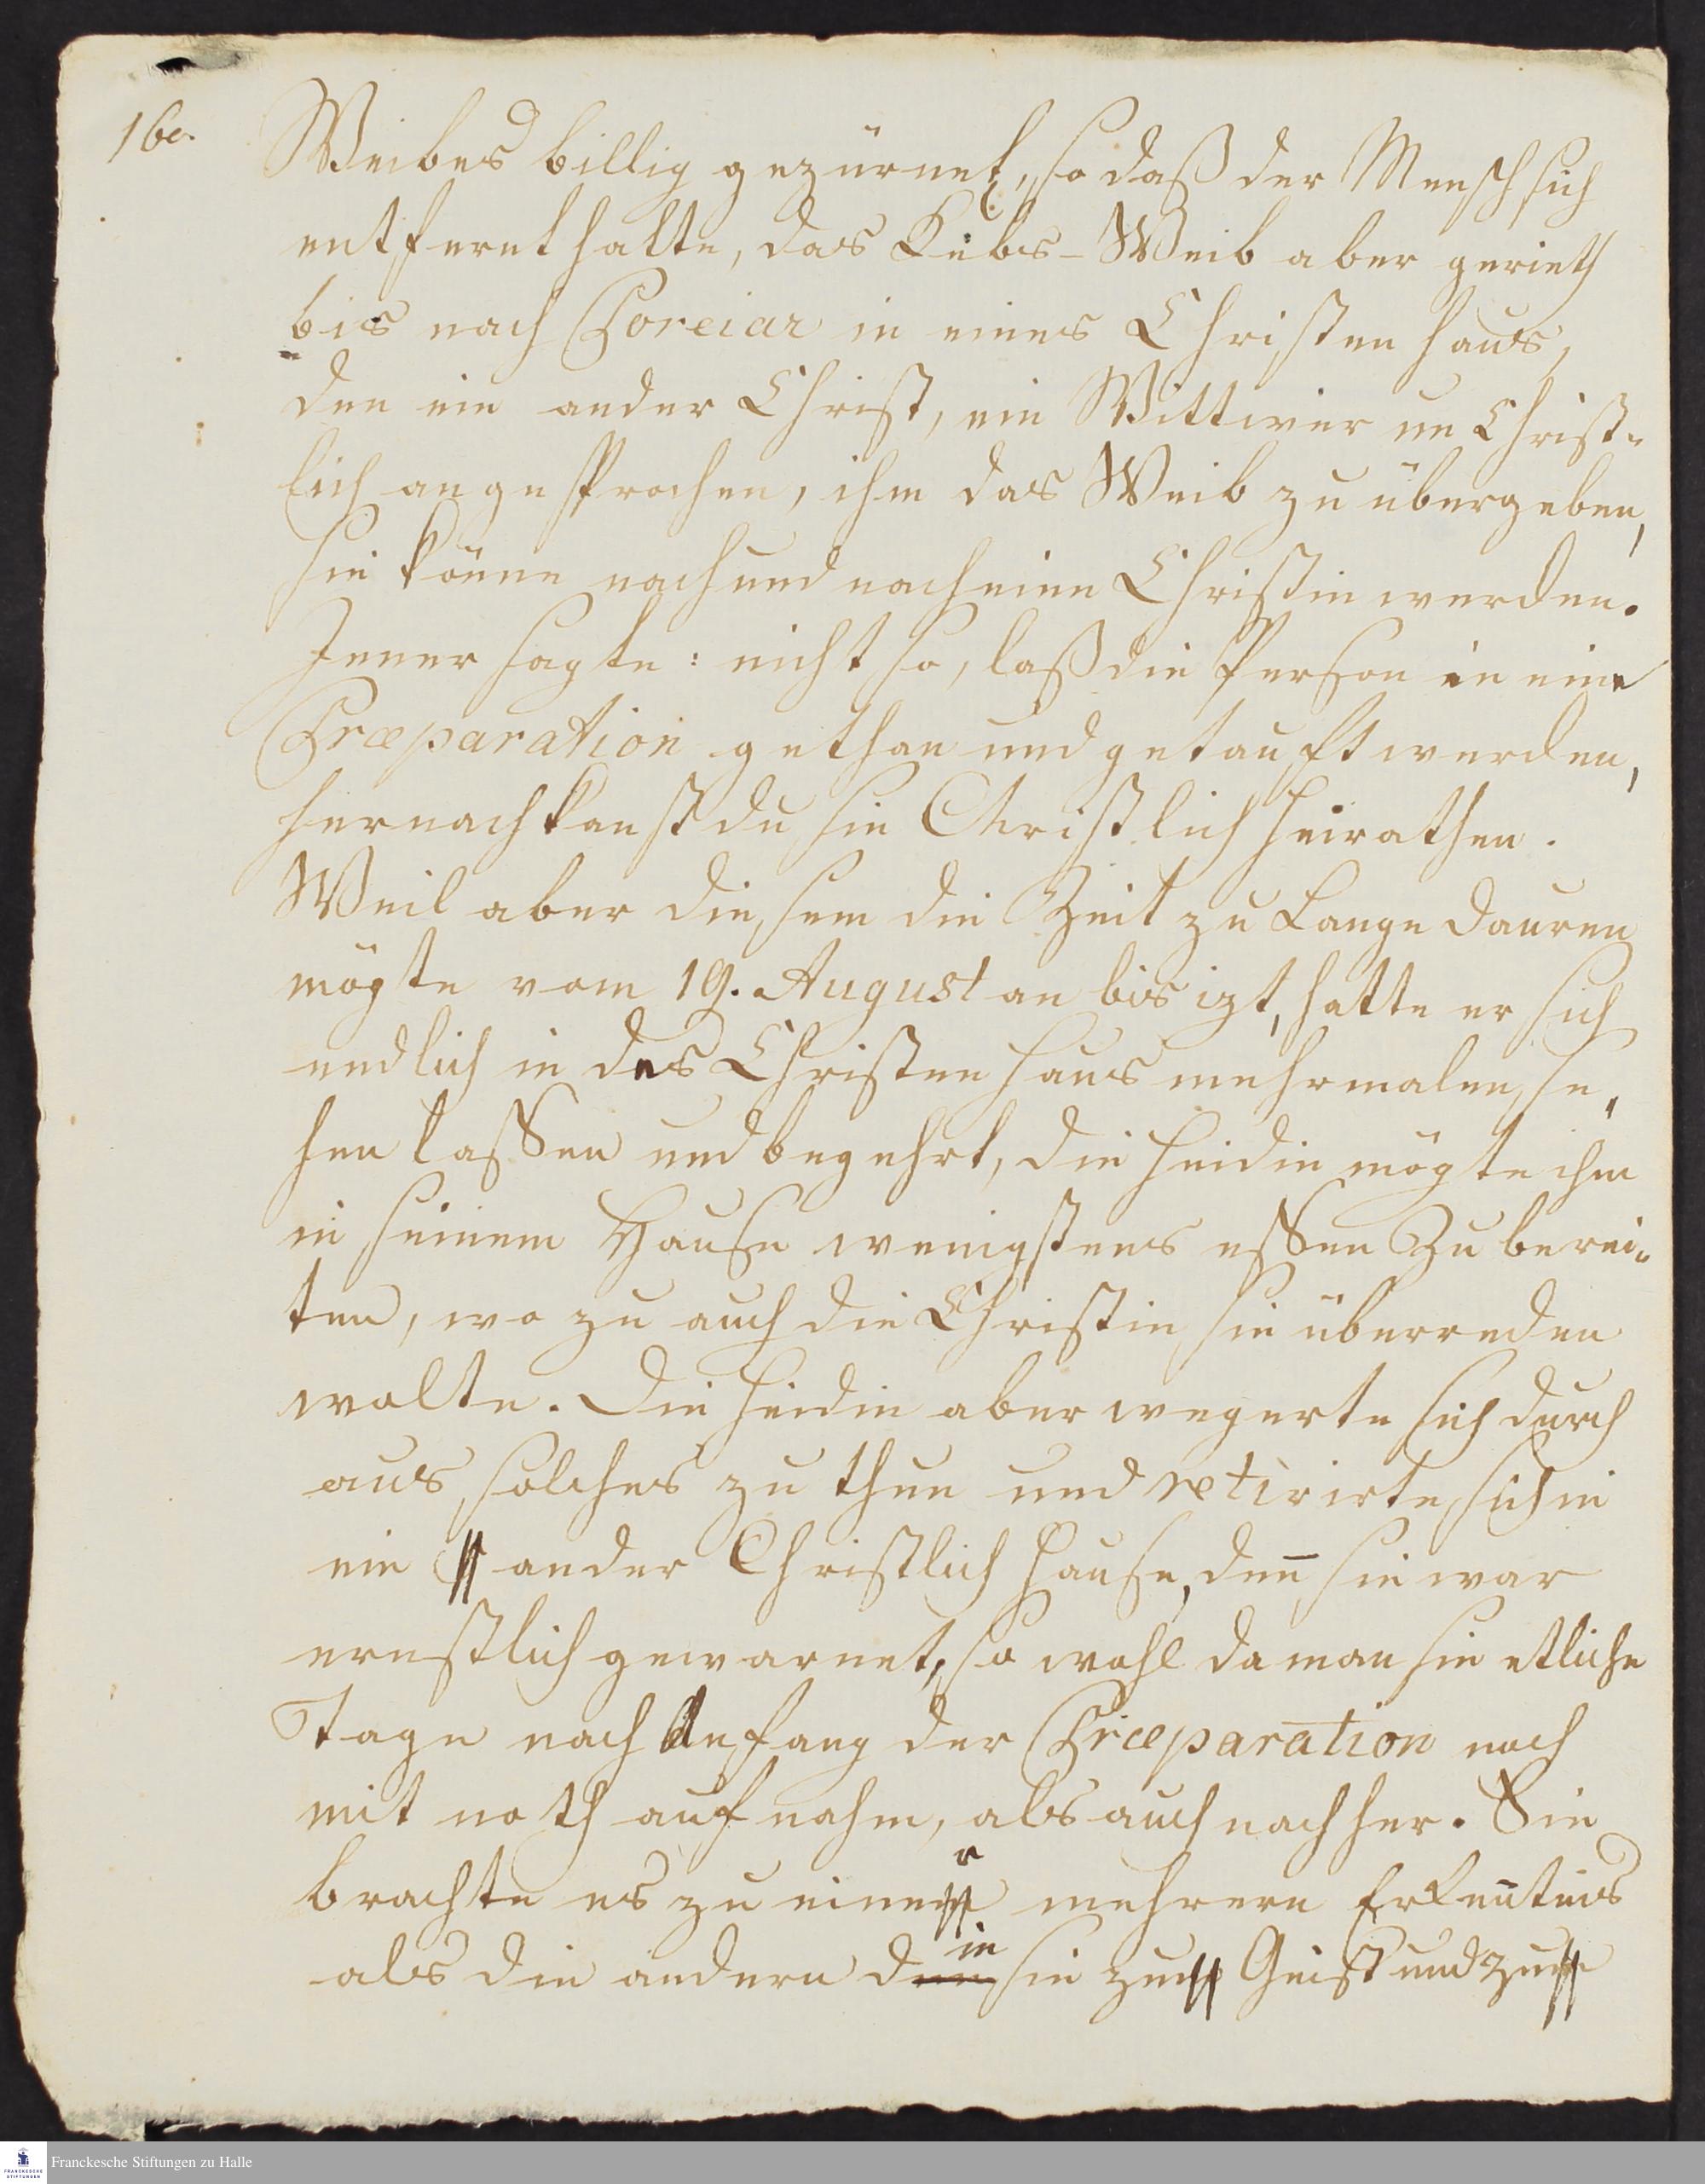 160.
Weibes billig gezürnet, so daß der Mensch sich
entfernt halte, das Kebs-Weib aber gerieth
bis nach Poreiar in eines Christen Haus,
den ein ander Christ, ein Wittwer un Christ-
lich angesprochen, ihm das Weib zu übergeben,
sie könne nach und nach eine Christin werden.
Jener sagte: nicht so, laß die Person in eine
Præparation gethan und getauft werden,
hernach kanst du sie Christlich heirathen.
Weil aber diesem die Zeit zu Lange dauren
mögte vom 19. August an bis izt, hatte er sich
endlich in des Christen Haus mehrmalen se-
hen lassen und begehrt, die Heidin mögte ihm
in seinem Hause wenigstens essen Zu berei-
ten, wo zu auch die Christin sie überreden
wolte. Die Heidin aber wegerte sich durch
aus, solches zu thun und retirirte sich in
ein ander Christlich Hause, den̄ sie war
ernstlich gewarnet, so wohl da man sie etliche
Tage nach Anfang der Præparation noch
mit noth aufnahm, als auch nachher. Sie
brachte es zu einer mehrere Erken̄tnis
als die andern die sie zu Geist und zu
Franckesche Stiftungen zu Halle